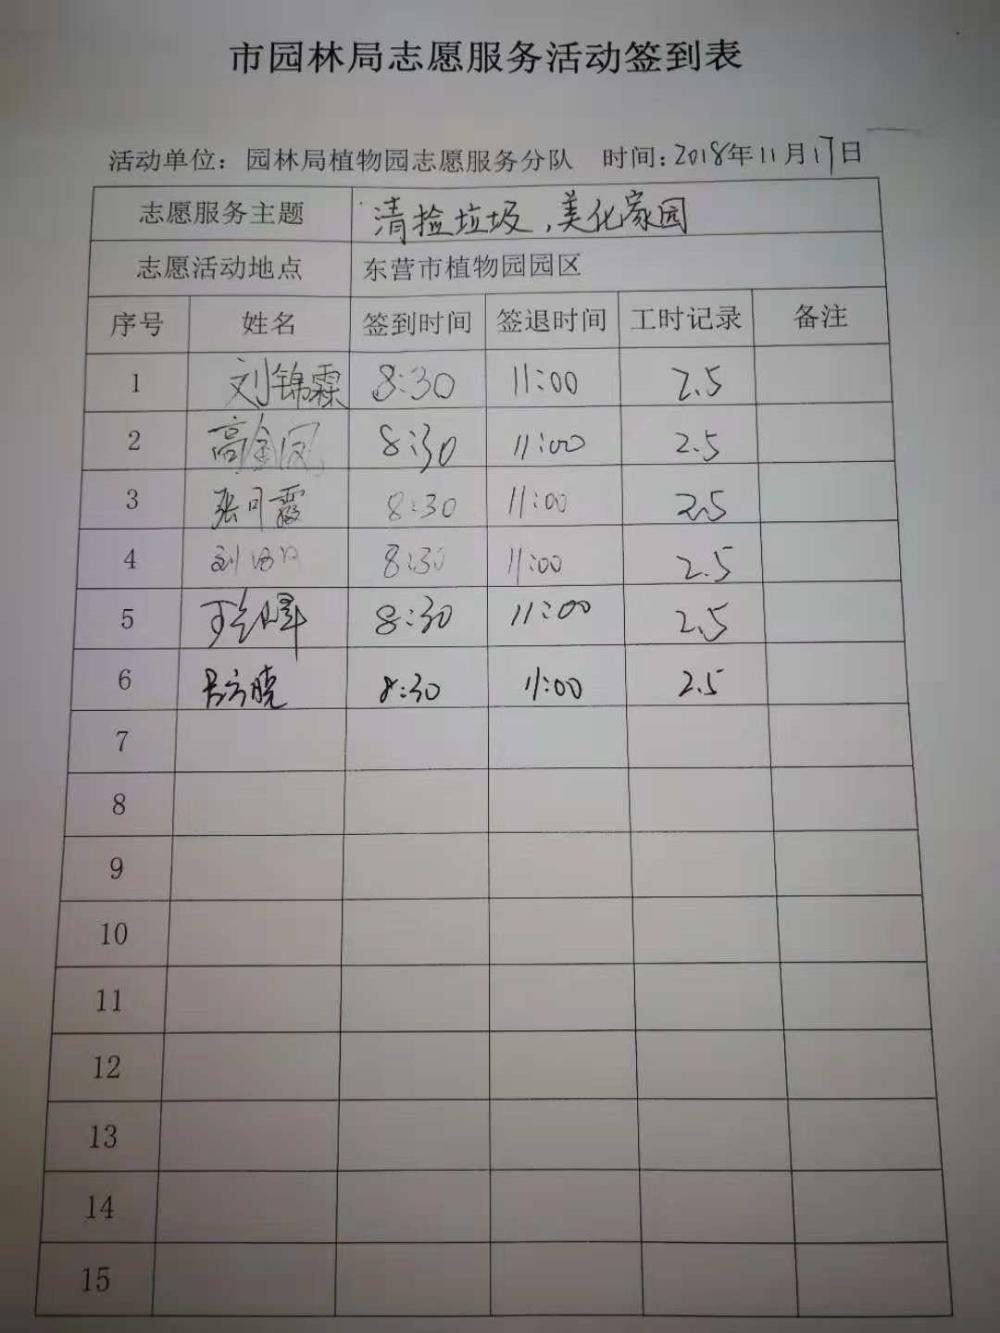 市园林局志愿服务活动签到表
活动单位：园林局植物园志愿服务分队 时间：2018年11月17日
志愿服务主题 清捡垃圾，美化家园
志愿活动地点 东营市植物园园区
序号 姓名 签到时间 签退时间 工时记录 备注
1 刘锦霖 8:30 11:00 2.5
2 高金凤 8:30 11:00 2.5
3 张可霞 8:30 11:00 2.5
4 刘 8:30 11:00 2.5
5 8:30 11:00 2.5
6 吕方晓 8:30 11:00 2.5
7
8
9
10
11
12
13
14
15